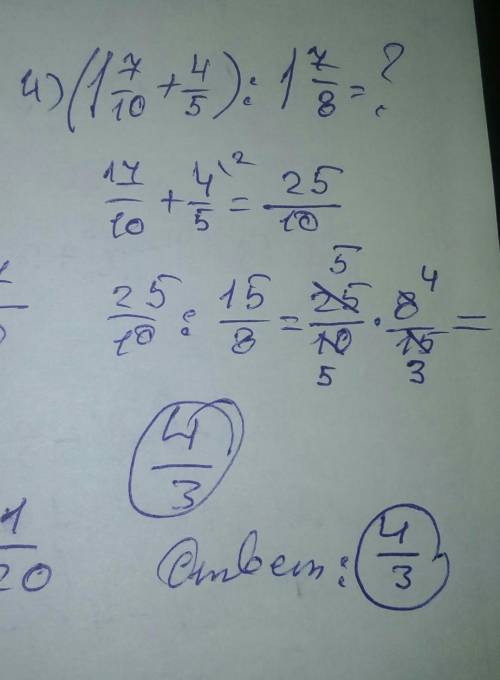 4) (1 7/10 + 4/5) : 1 7/8 = ?
17/10 + 4/5 \2 = 25/10
25/10 : 15/8 = 25/10 · 8/15 =
5 4
5 3
4/3
1/20
Ответ: 4/3